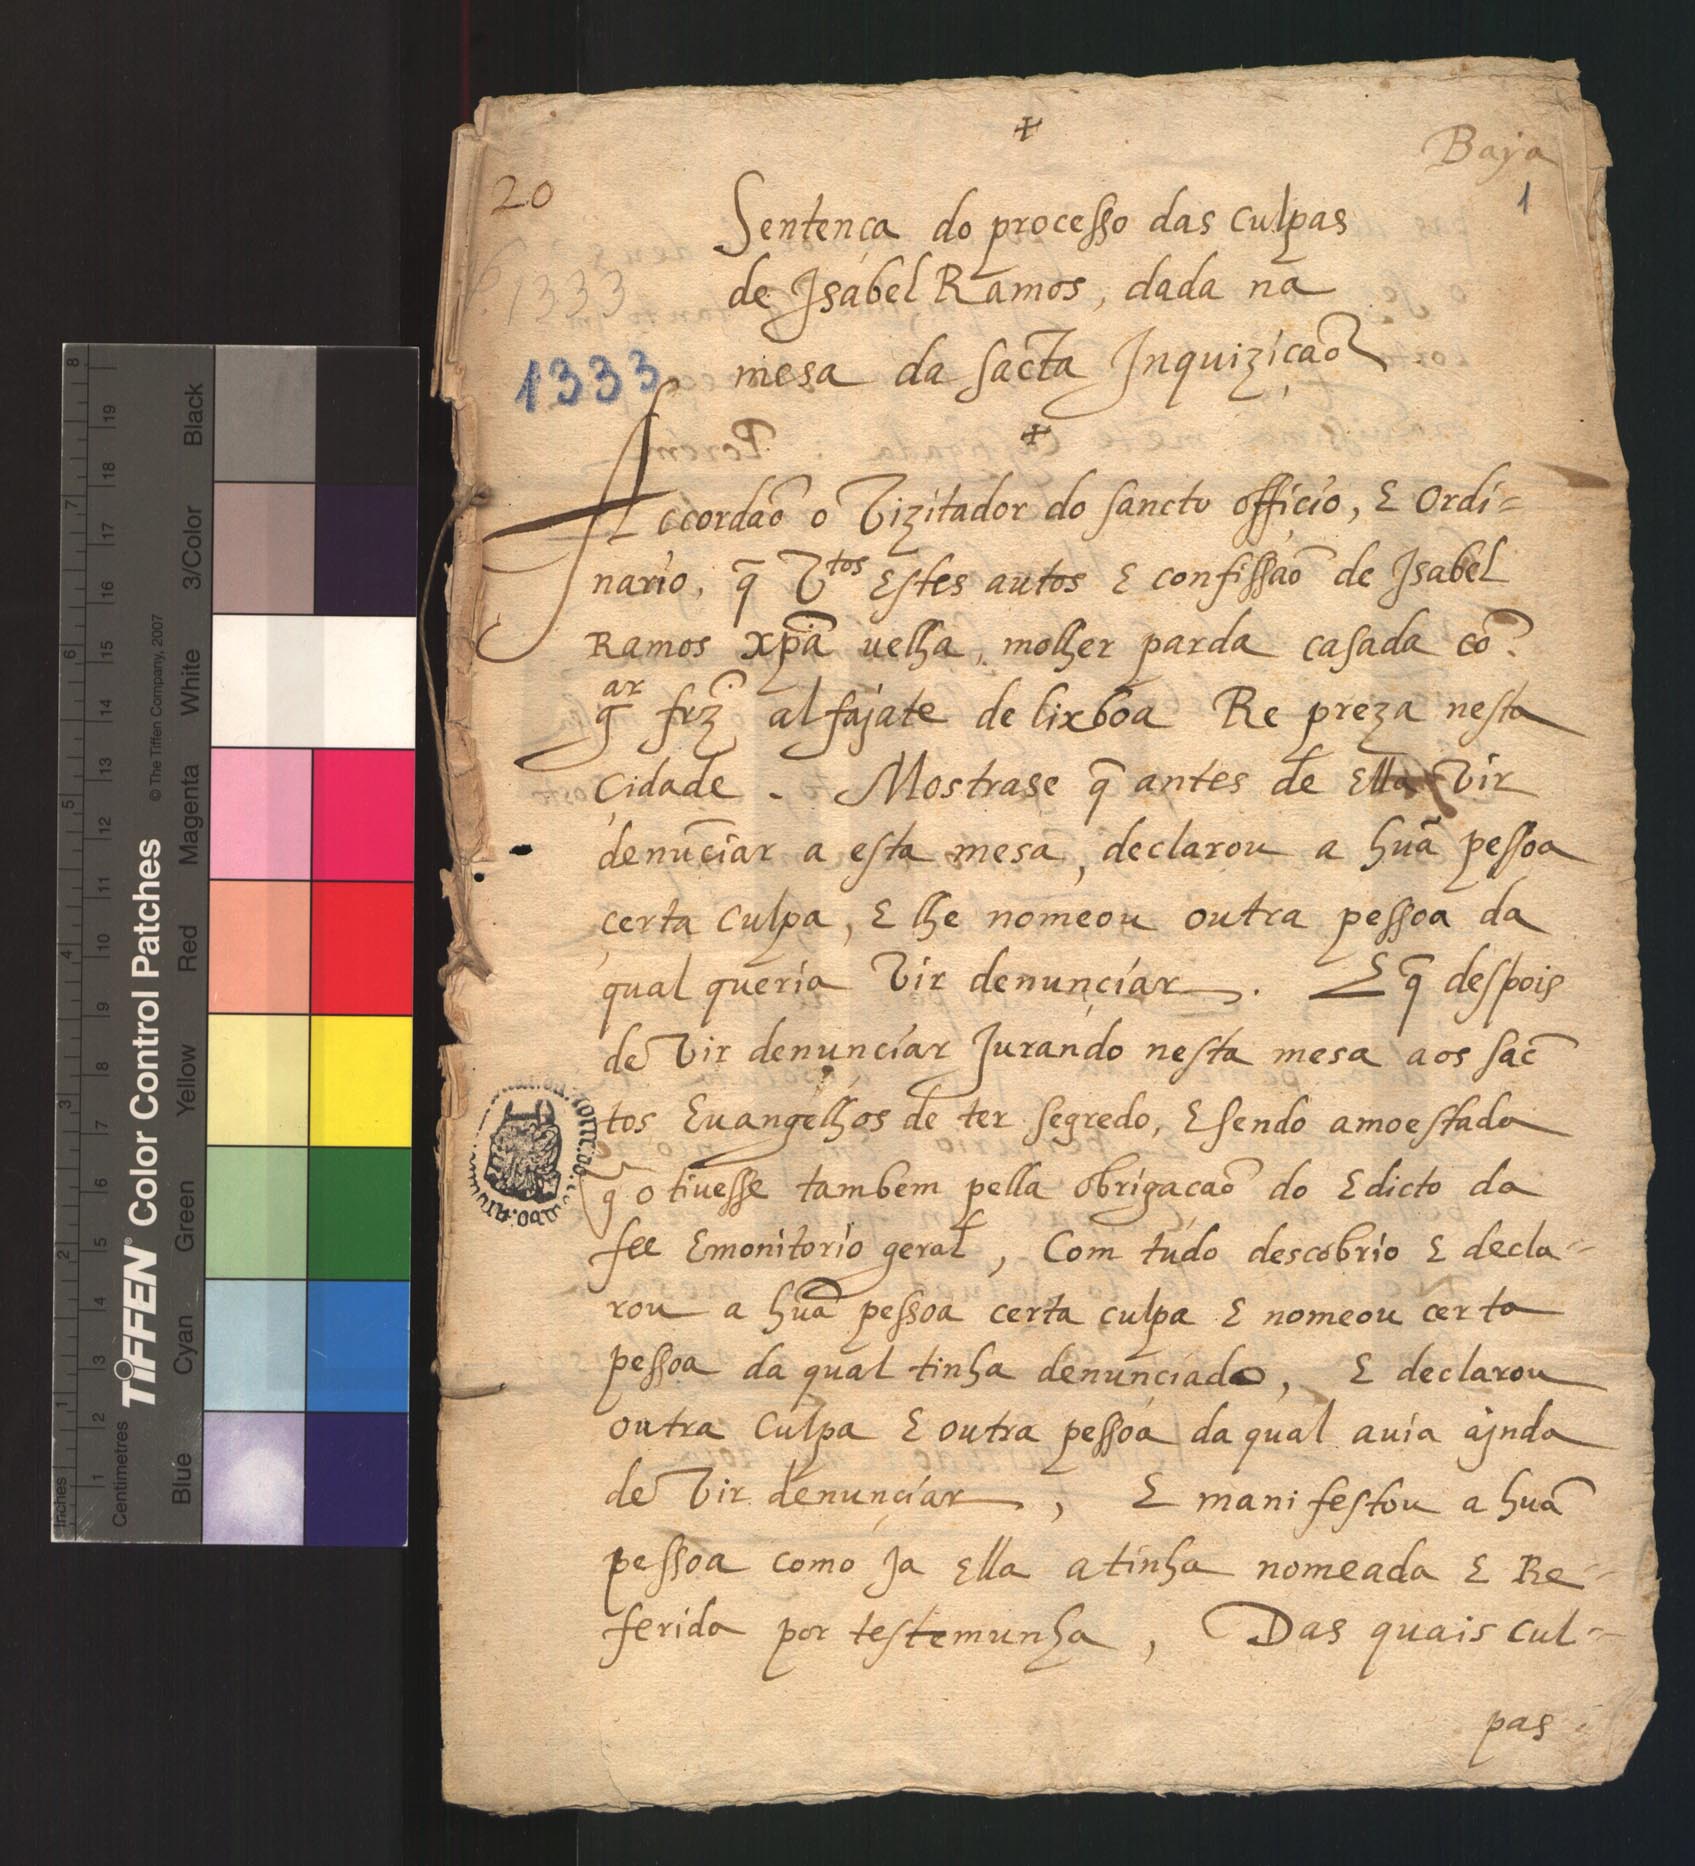 +
Baya
1
20
Sentença do processo das culpas
de Isabel Ramos, dada na
mesa da sac̃ta Inquiziçaõ
1333
1333
+
Accordaõ o Vizitador do sancto officio, E Ordi=
nario, q̃ Vtos Estes autos E confissaõ de Isabel
Ramos xpã uelha, molher parda casada cõ
gar frz̃ alfajate de lixboa Re preza nesta
Cidade. Mostrase q̃ antes de Ella Vir
denunciar a esta mesa, declarou a huã pessoa
certa culpa, E lhe nomeou outra pessoa da
qual queria Vir denunçiar. E q̃ despois
de Vir denunciar Jurando nesta mesa aos sac̃
tos Euangelhos de ter segredo, E sendo amoestada
q̃ o tiuesse tambem pella obrigacaõ do Edicto da
fee E monitorio geral, Com tudo descobrio E decla=
rou a huã pessoa certa culpa E nomeou certa
pessoa da qual tinha denunciado, E declarou
outra Culpa E outra pessoa da qual auia ajnda
de Vir denunçiar, E manifestou a huã
pessoa como Ja Ella a tinha nomeada E Re=
ferida por testemunha, Das quais cul=
pas
Inches
Centimetres
1 2 3 4 5 6 7 8
1 2 3 4 5 6 7 8 9 10 11 12 13 14 15 16 17 18 19
TIFFEN® Color Control Patches
© The Tiffen Company, 2007
Blue Cyan Green Yellow Red Magenta White 3/Color Black